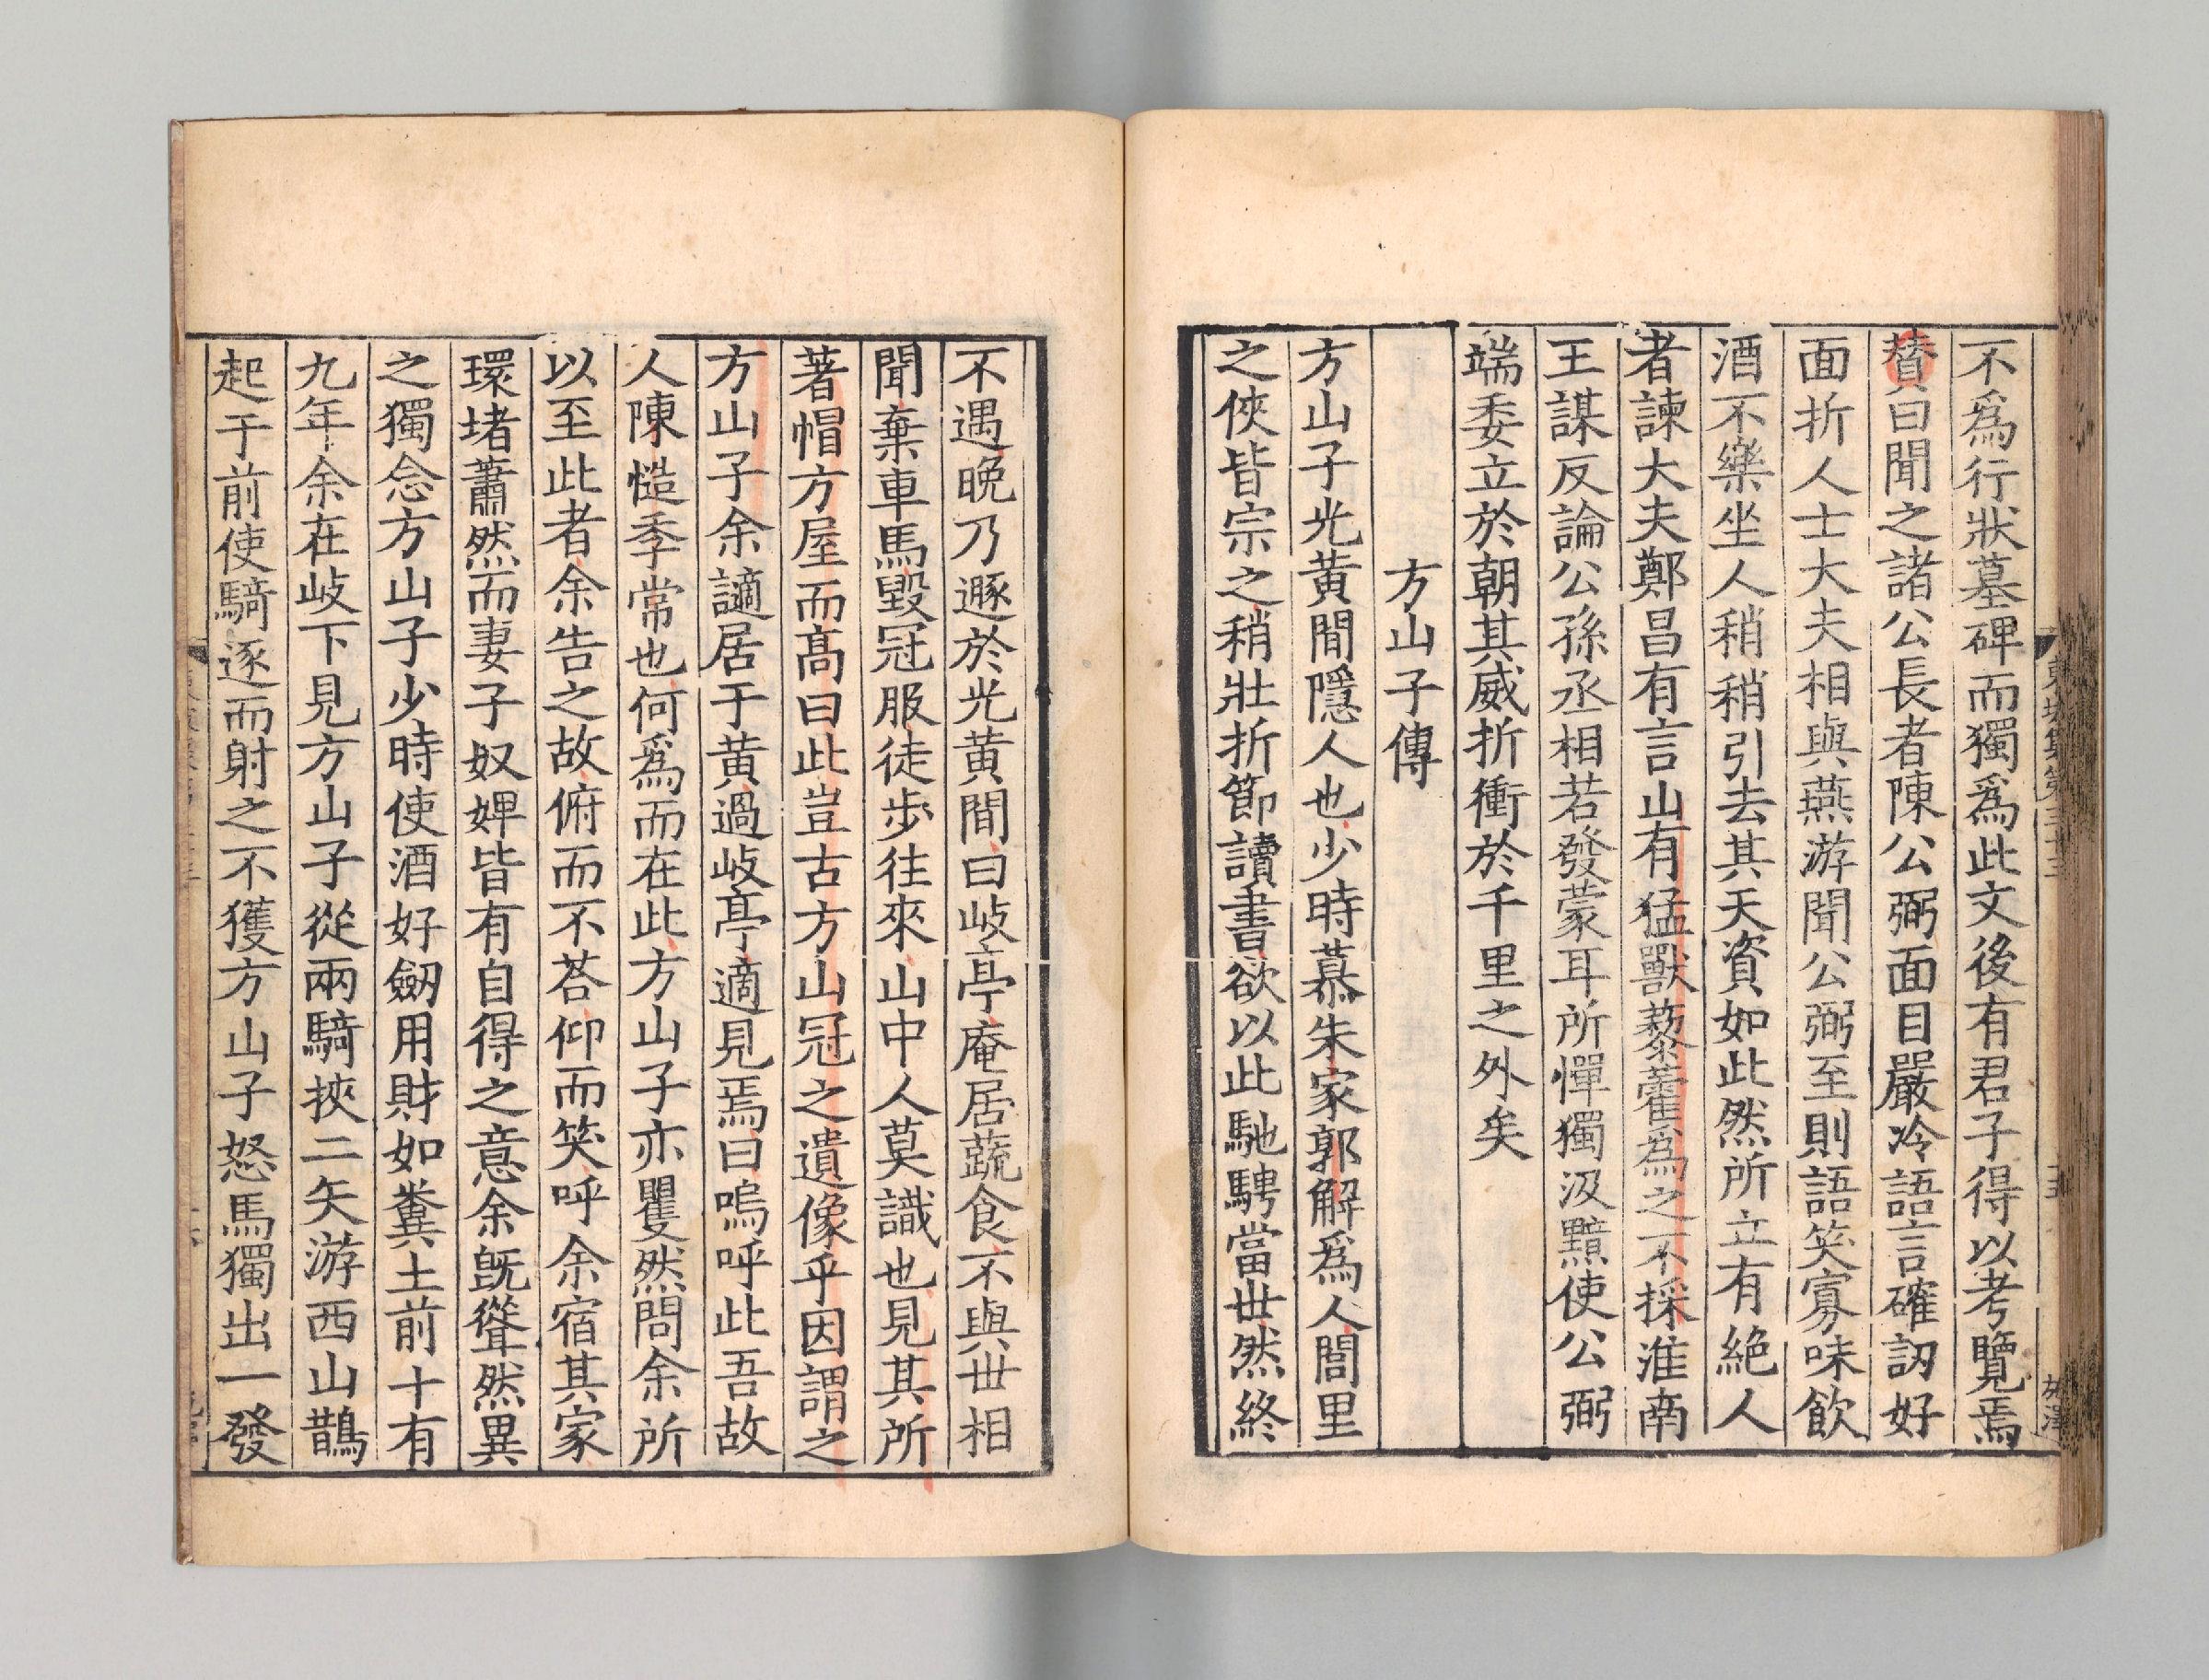 不爲行狀墓碑而獨爲此文後有君子得以考覽焉
贊曰聞之諸公長者陳公弼面目嚴冷語言確訒好
面折人士大夫相與燕游聞公弼至則語笑寡味飲
酒不樂坐人稍稍引去其天資如此然所立有絶人
者諫大夫鄭昌有言山有猛獸藜藿爲之不採淮南
王謀反論公孫丞相若發蒙耳所憚獨汲黯使公弼
端委立於朝其威折衝於千里之外矣
方山子傳
方山子光黃閒隱人也少時慕朱家郭解爲人閭里
之俠皆宗之稍壯折節讀書欲以此馳騁當世然終
不遇晚乃遯於光黃閒曰岐亭庵居蔬食不與世相
聞棄車馬毀冠服徒步往來山中人莫識也見其所
著帽方屋而髙曰此豈古方山冠之遺像乎因謂之
方山子余謫居于黃過岐亭適見焉曰嗚呼此吾故
人陳慥季常也何爲而在此方山子亦矍然問余所
以至此者余告之故俯而不荅仰而笑呼余宿其家
環堵蕭然而妻子奴婢皆有自得之意余旣聳然異
之獨念方山子少時使酒好劒用財如糞土前十有
九年余在岐下見方山子從兩騎挾二矢游西山鵲
起于前使騎逐而射之不獲方山子怒馬獨出一發
東坡集第三十三